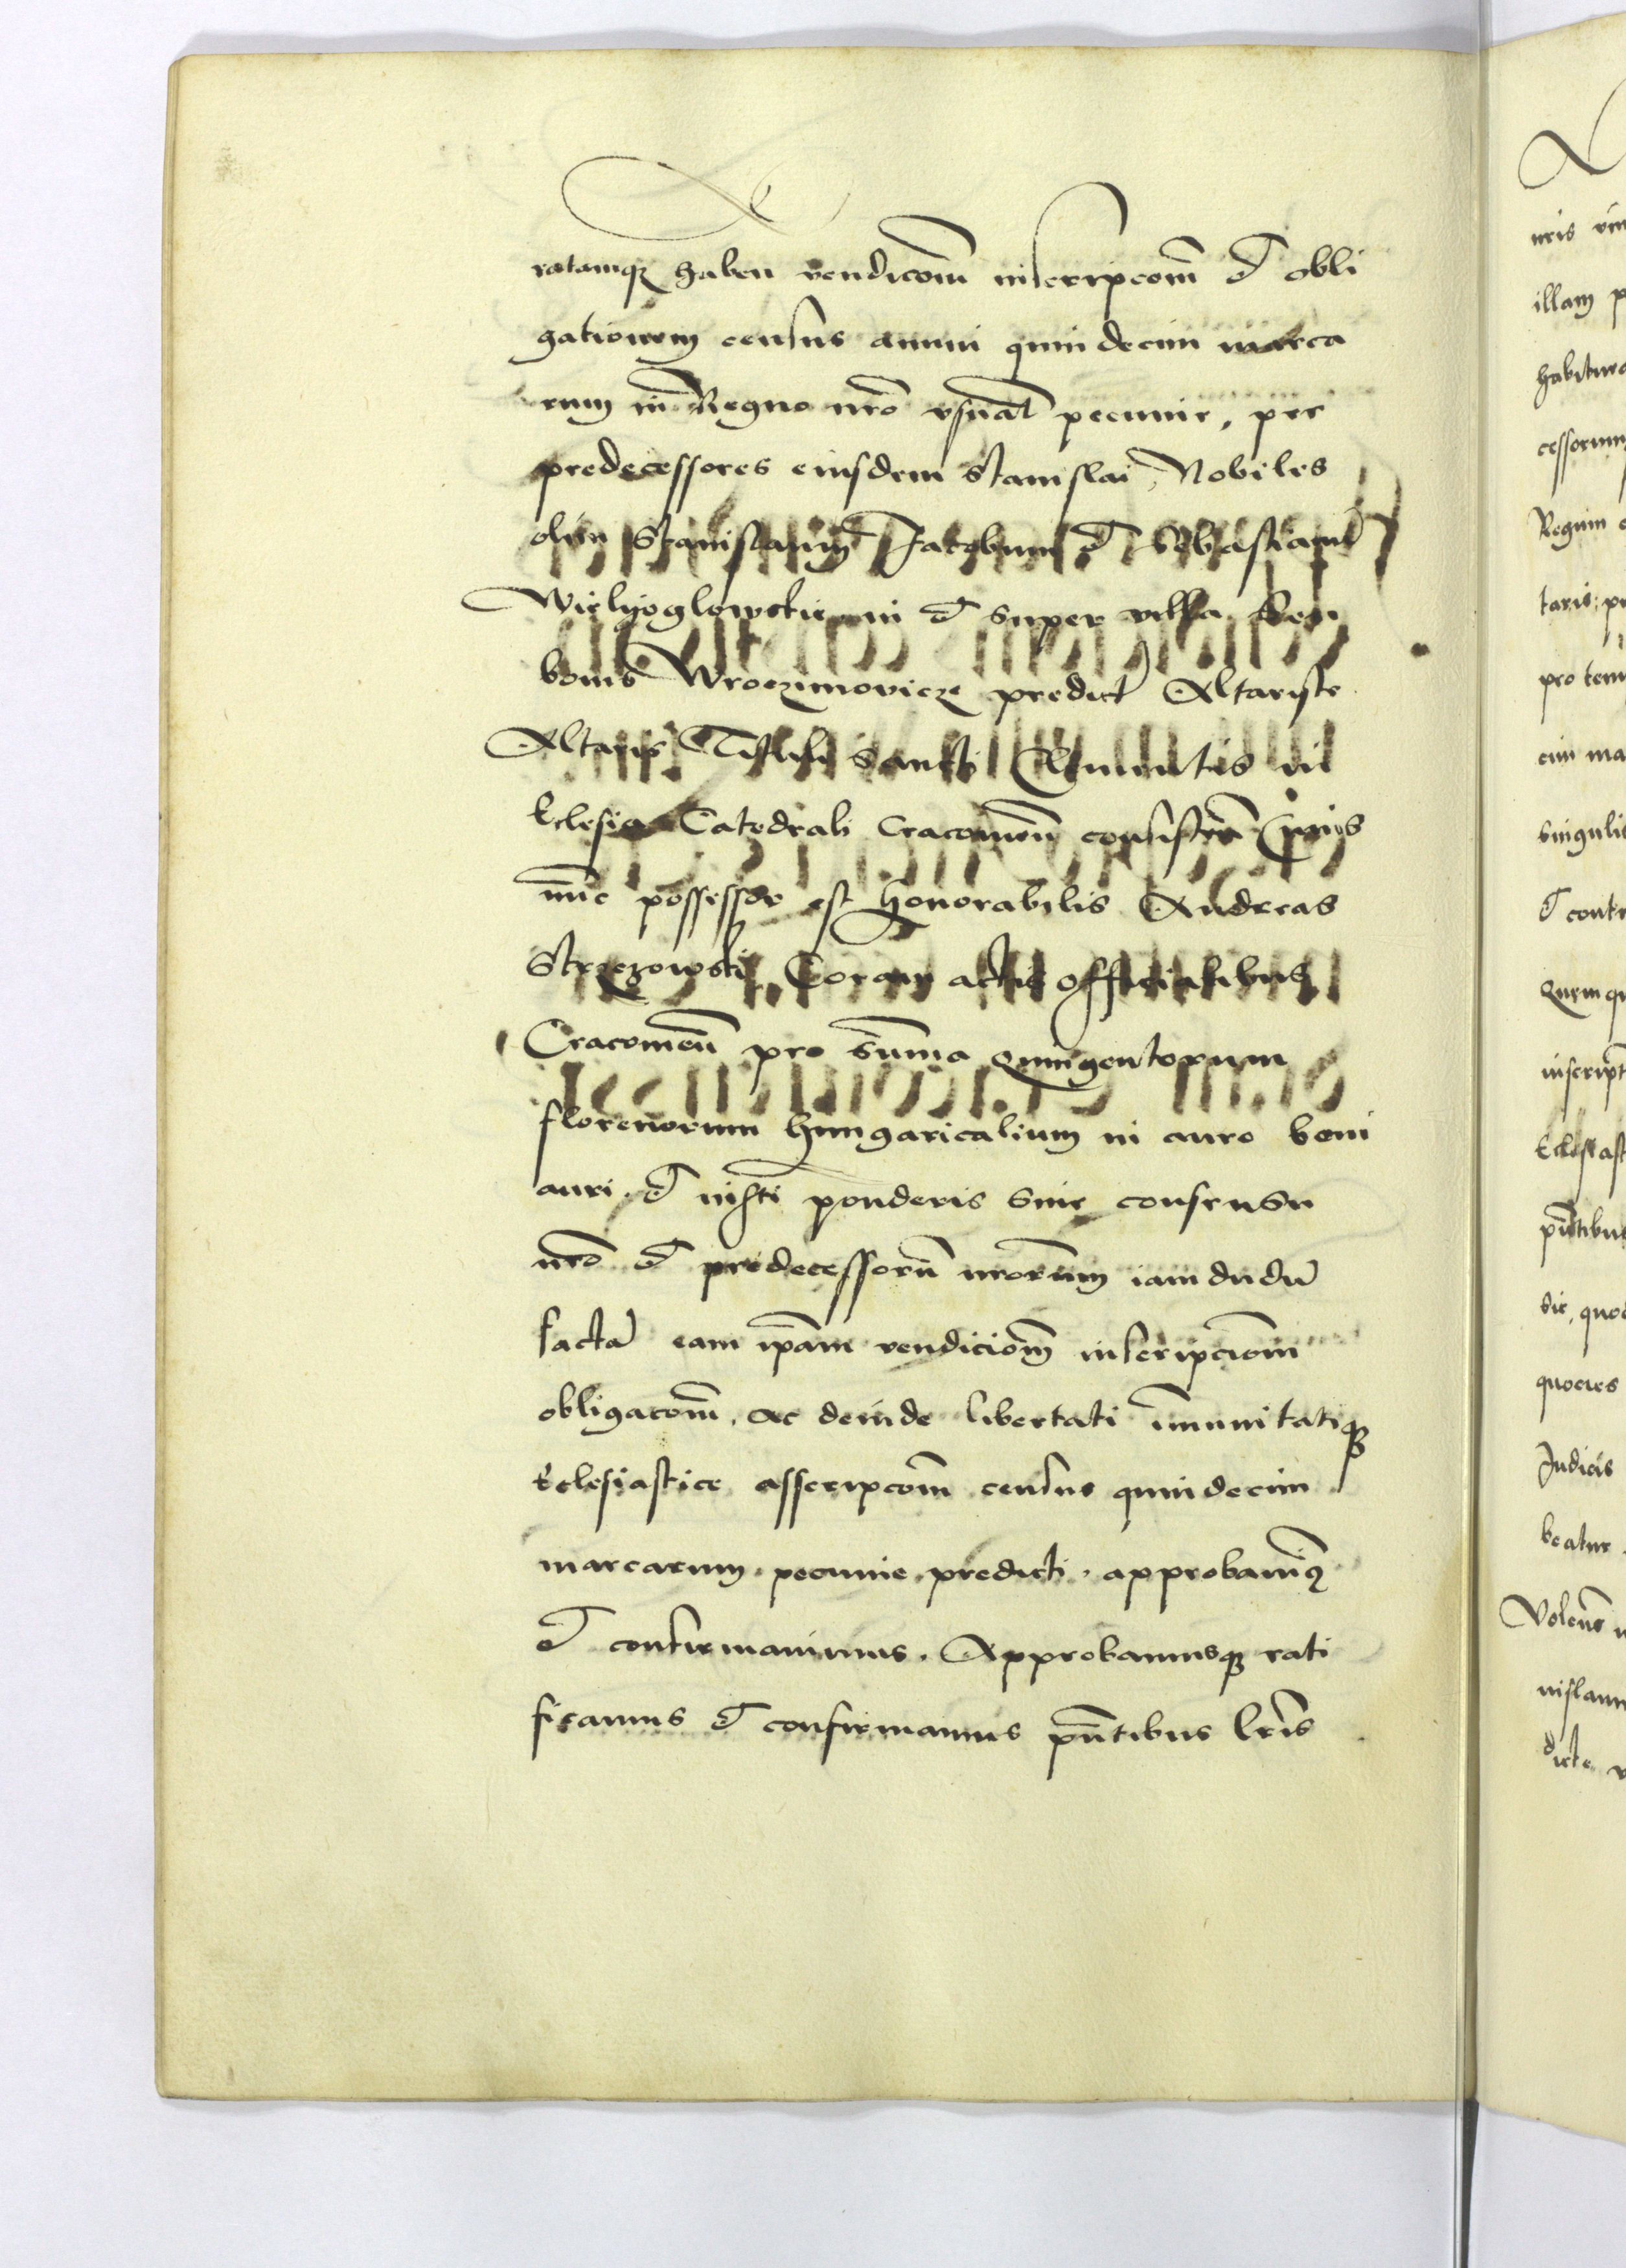 ratamqȝ haben vendicoem inscripcoem et obli
gationem census annui quindecim marca
rum in Regno nro vsual pecunie, per
predecessores eiusdem Stanislai, Nobiles
olim Stanislaum Jacobum et Sebastianu
Wielyoglowskie in et super villa seu
bonis Wroczimovicze predict Altariste
Altaris Tituli Sancti Clementis in
Eclesia Catedrali Cracovien consisten Cuius
nuc possessor est honorabilis Andreas
Strzezowski, Coram actis officialibus
Cracovien pro summa quingentorum
florenorum hungaricalium in auro boni
auri et iusti ponderis sine consensu
nro et predecessoru nrorum iamdudu
facta eam ipam vendiciom inscripciom
obligacom, ac deinde libertati imunitatiqȝ
Eclesiastice asscripcom census quindecim
marcarum pecunie predicti, approbavimus
et confirmavimus. Approbamusqȝ rati
ficamus et confirmamus pntibus lris
nris
illam
cessorum
Regnim
taris
pro tem
cim ma
singulis
et contr
inscript
Eclesiast
pntibus
quocies
Judiciis
beatur
Volens
nislaum
dicte